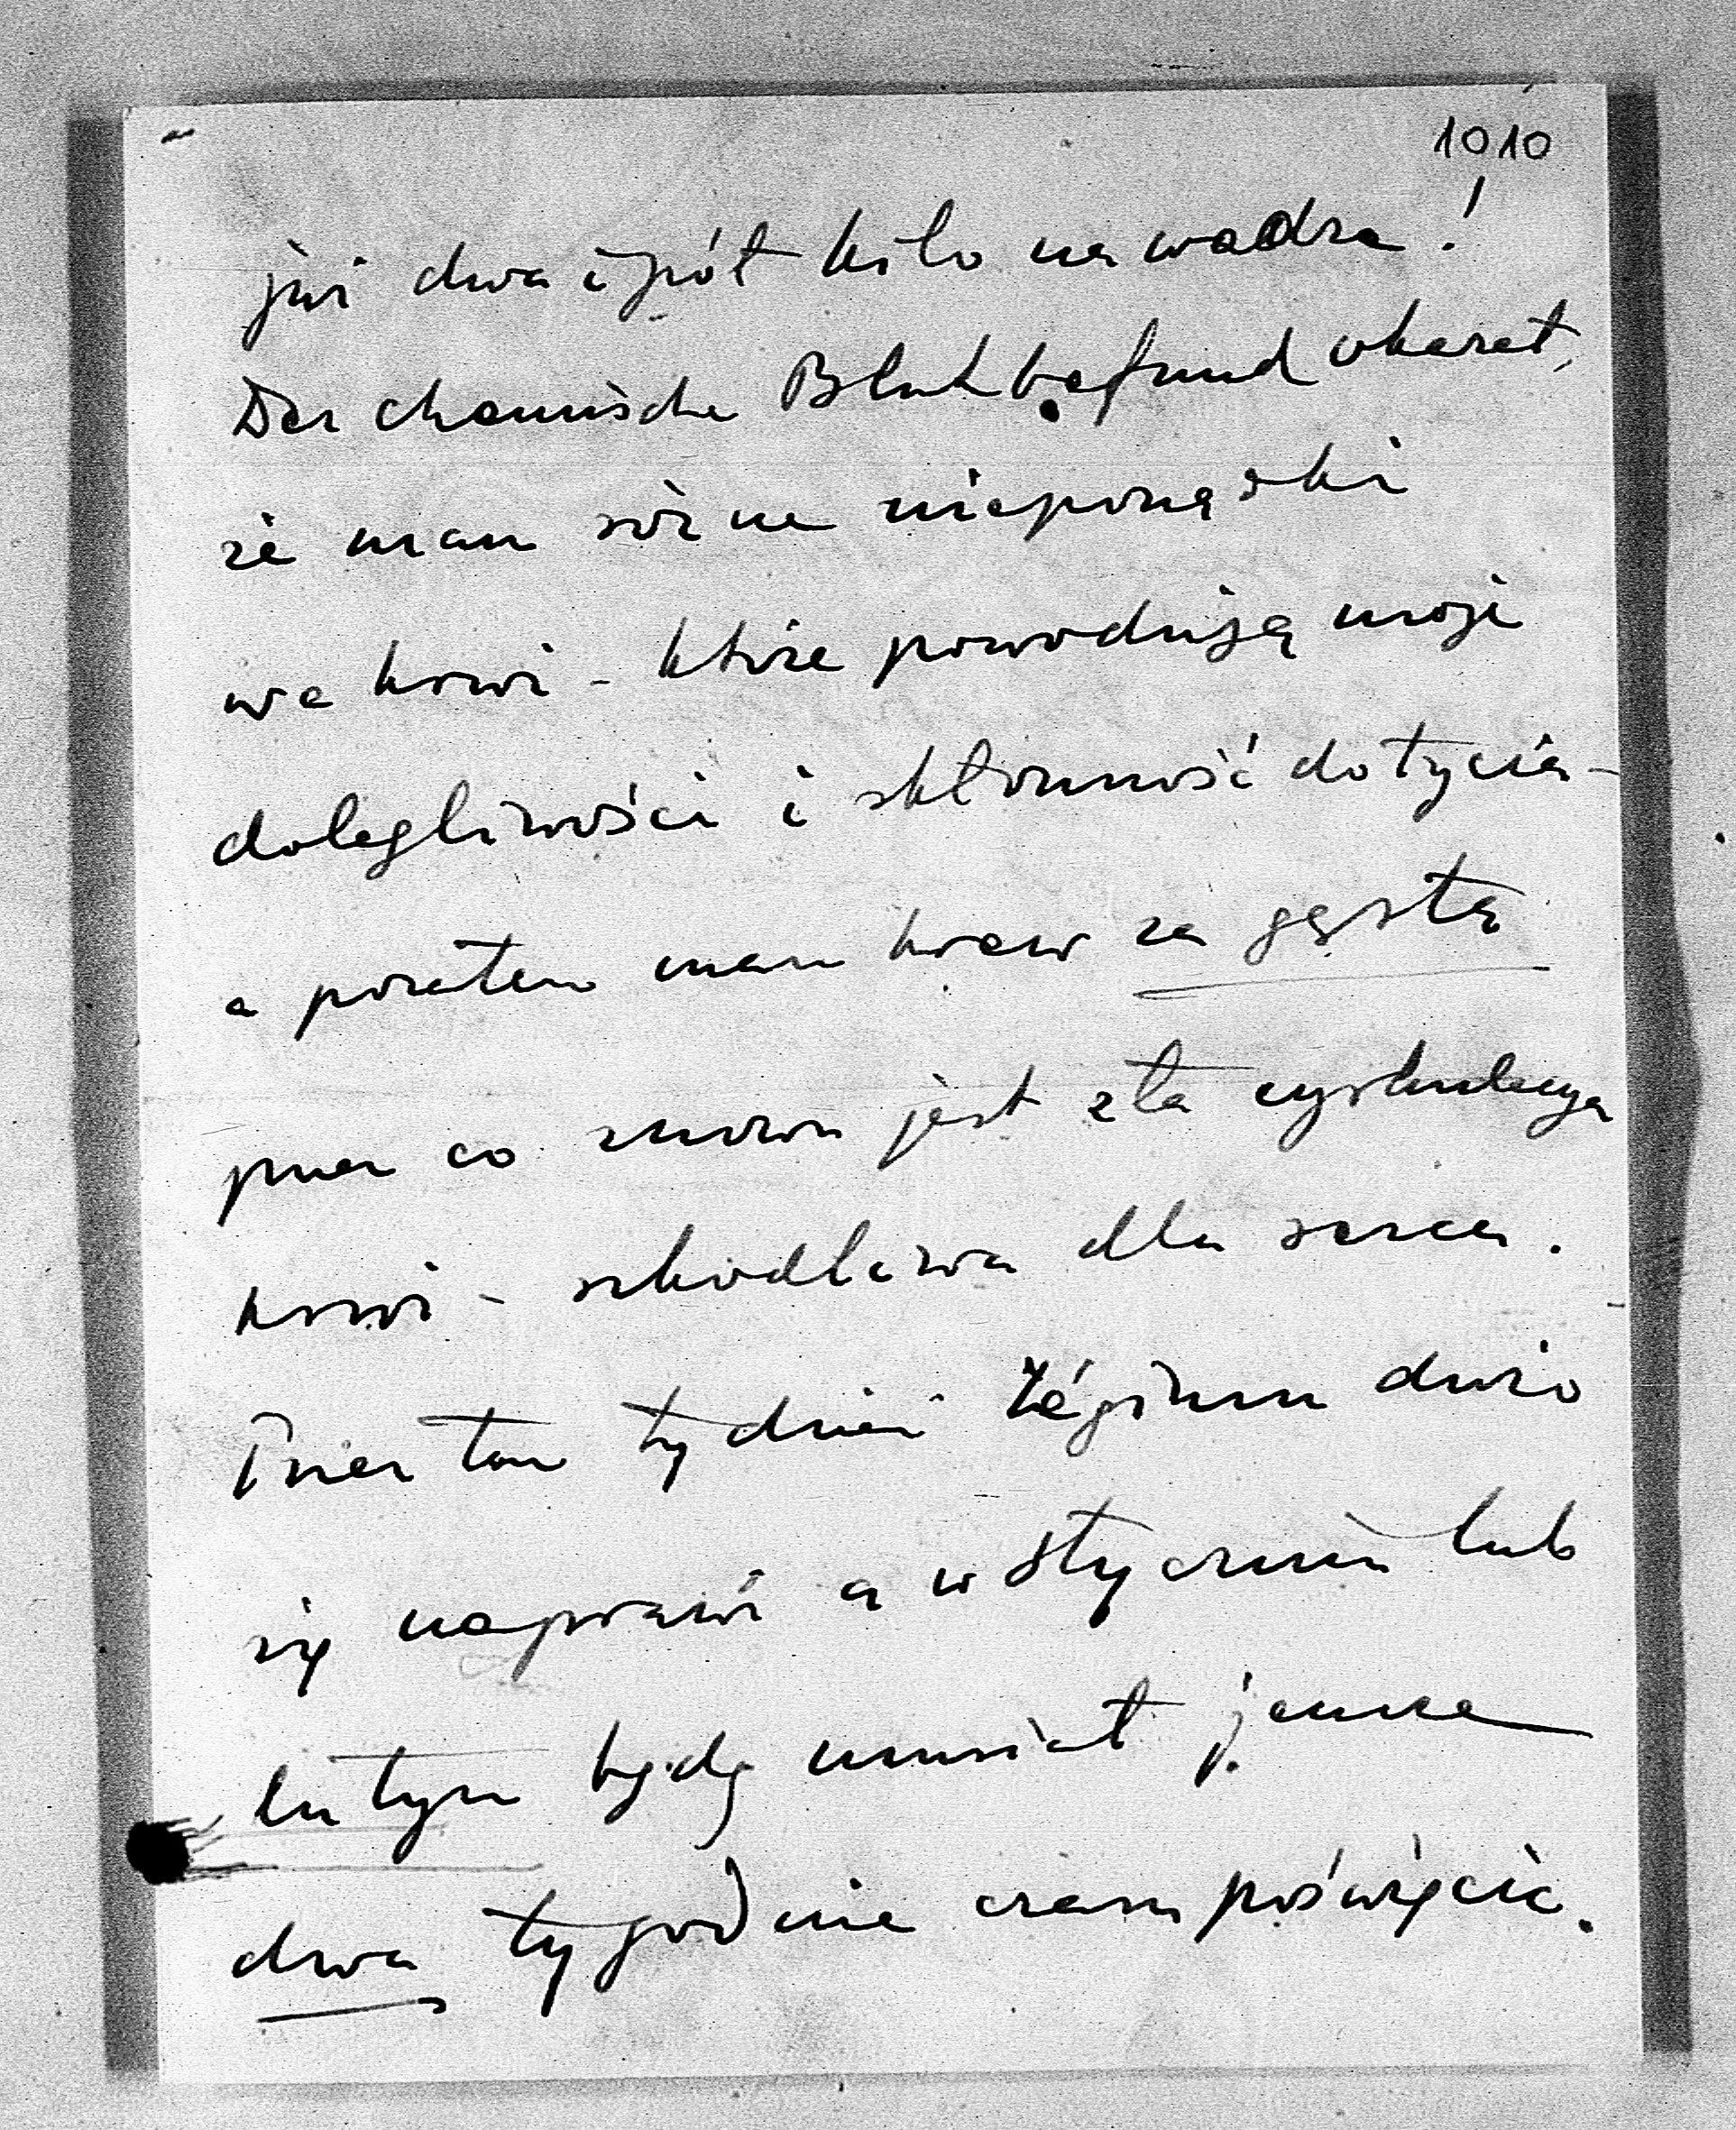 1010
już dwa i pół kilo na wadze!
Der chemische Blutbefund okazał,
że mam różne nieporządki
we krwi - które powodują moje
dolegliwości i skłonność do tycia -
a pozatem mam krew za gęstą
przez co znowu jest zła cyrkulacya
krwi - szkodliwa dla serca.
Przez ten tydzień régimu dużo
się naprawi a w styczniu lub
lutym będę musiał jeszcze
dwa tygodnie czasu poświęcić.